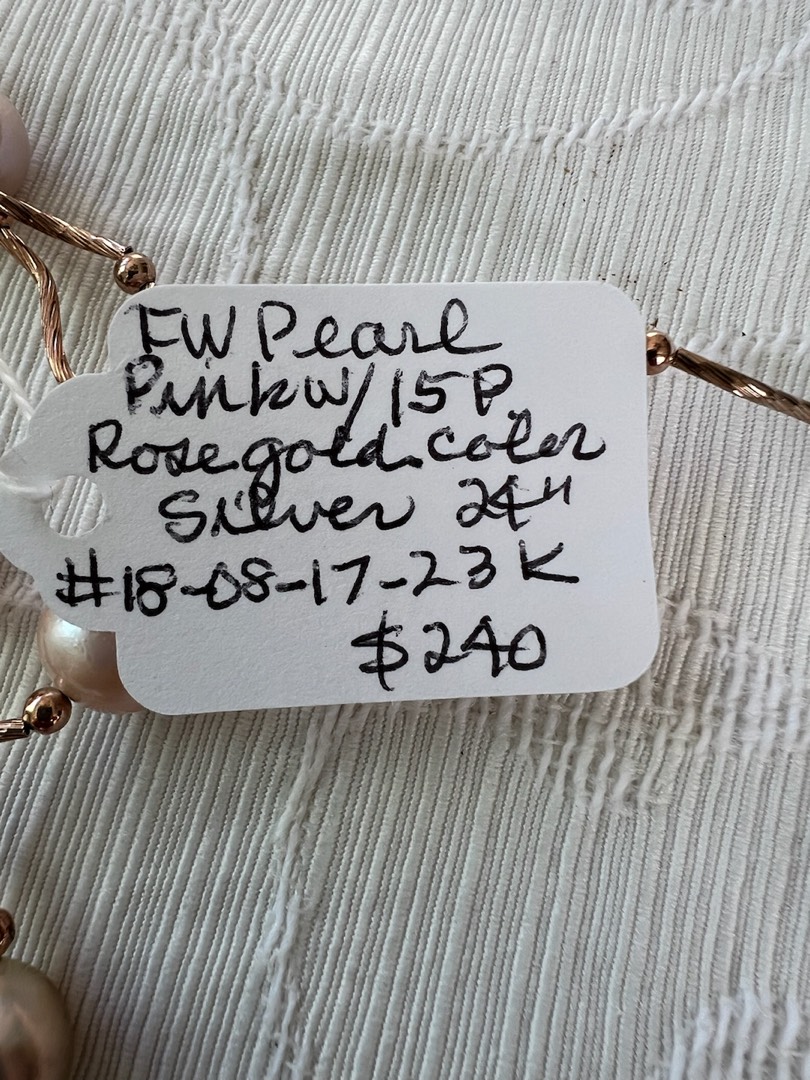 FW Pearl
Pink W/15P
Rose gold color
Silver 24"
#18-08-17-23K
$240